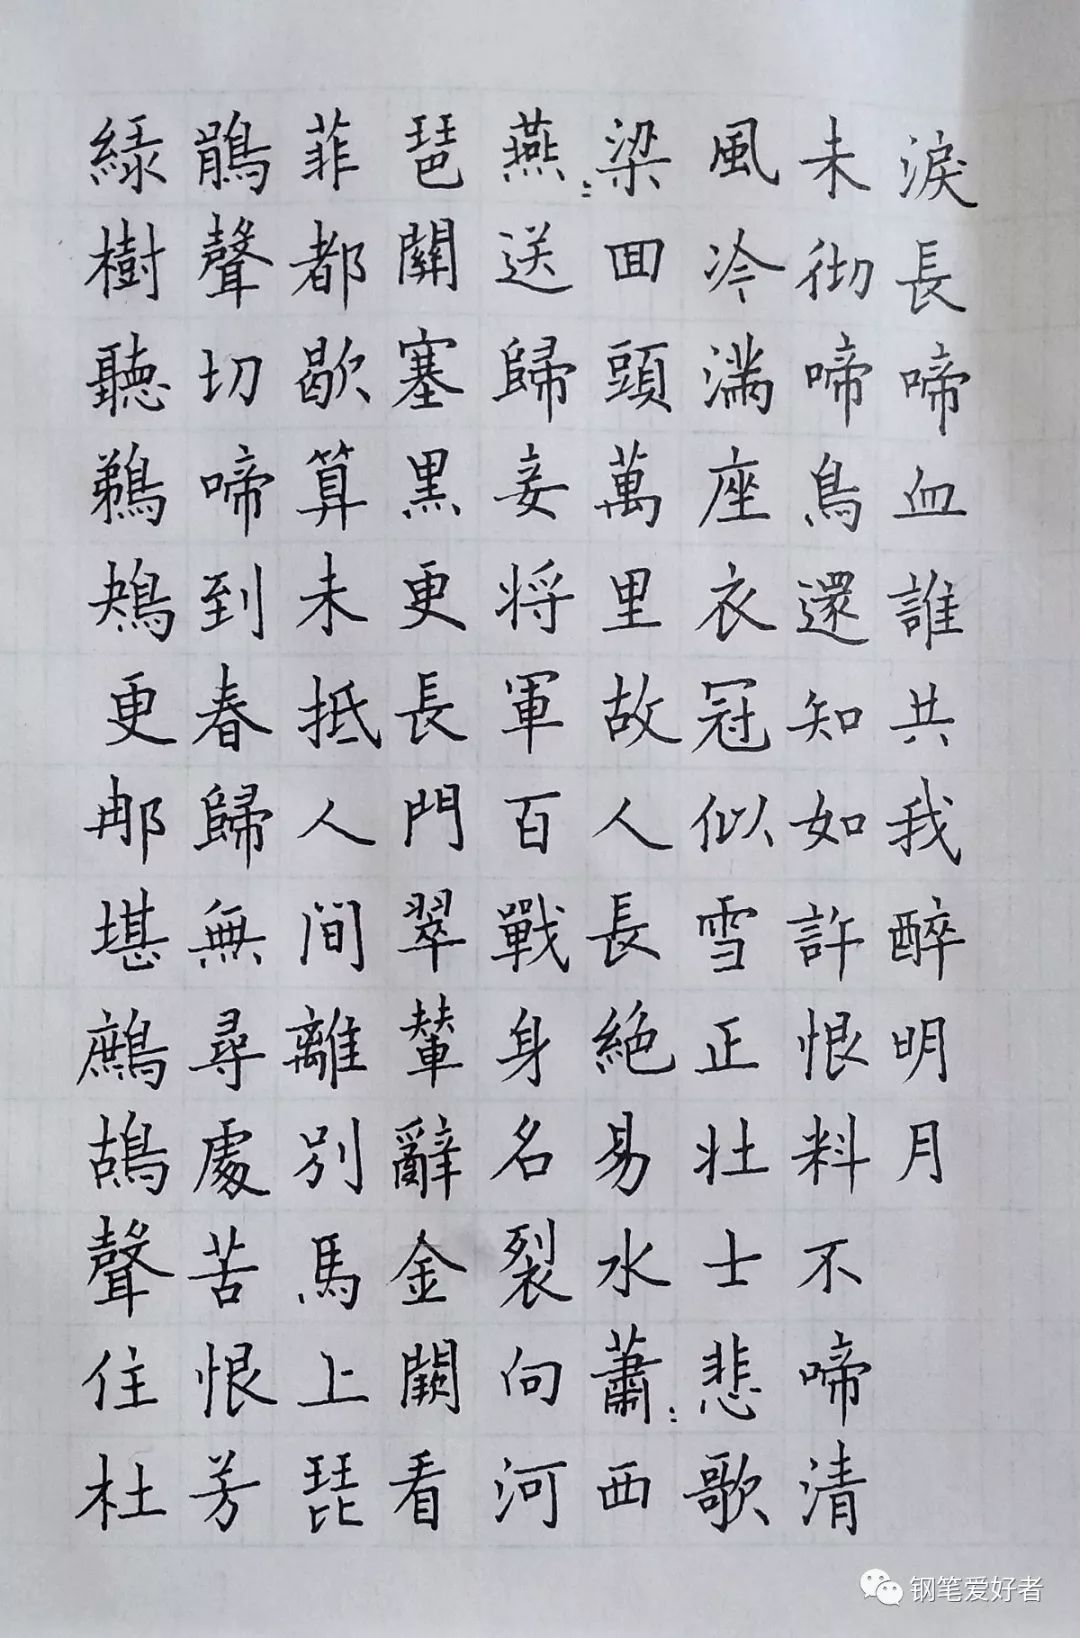 綠樹聽鵜鴂更那堪鷓鴣聲住杜
鵑聲切啼到春歸無尋處苦恨芳
菲都歇算未抵人间離別馬上琵
琶關塞黑更長門翠輦辭金闕看
燕〻送歸妾将軍百戰身名裂向河
梁回頭萬里故人長絕易水蕭〻西
風冷滿座衣冠似雪正壮士悲歌
未彻啼鳥還知如許恨料不啼清
淚長啼血誰共我醉明月
钢笔爱好者